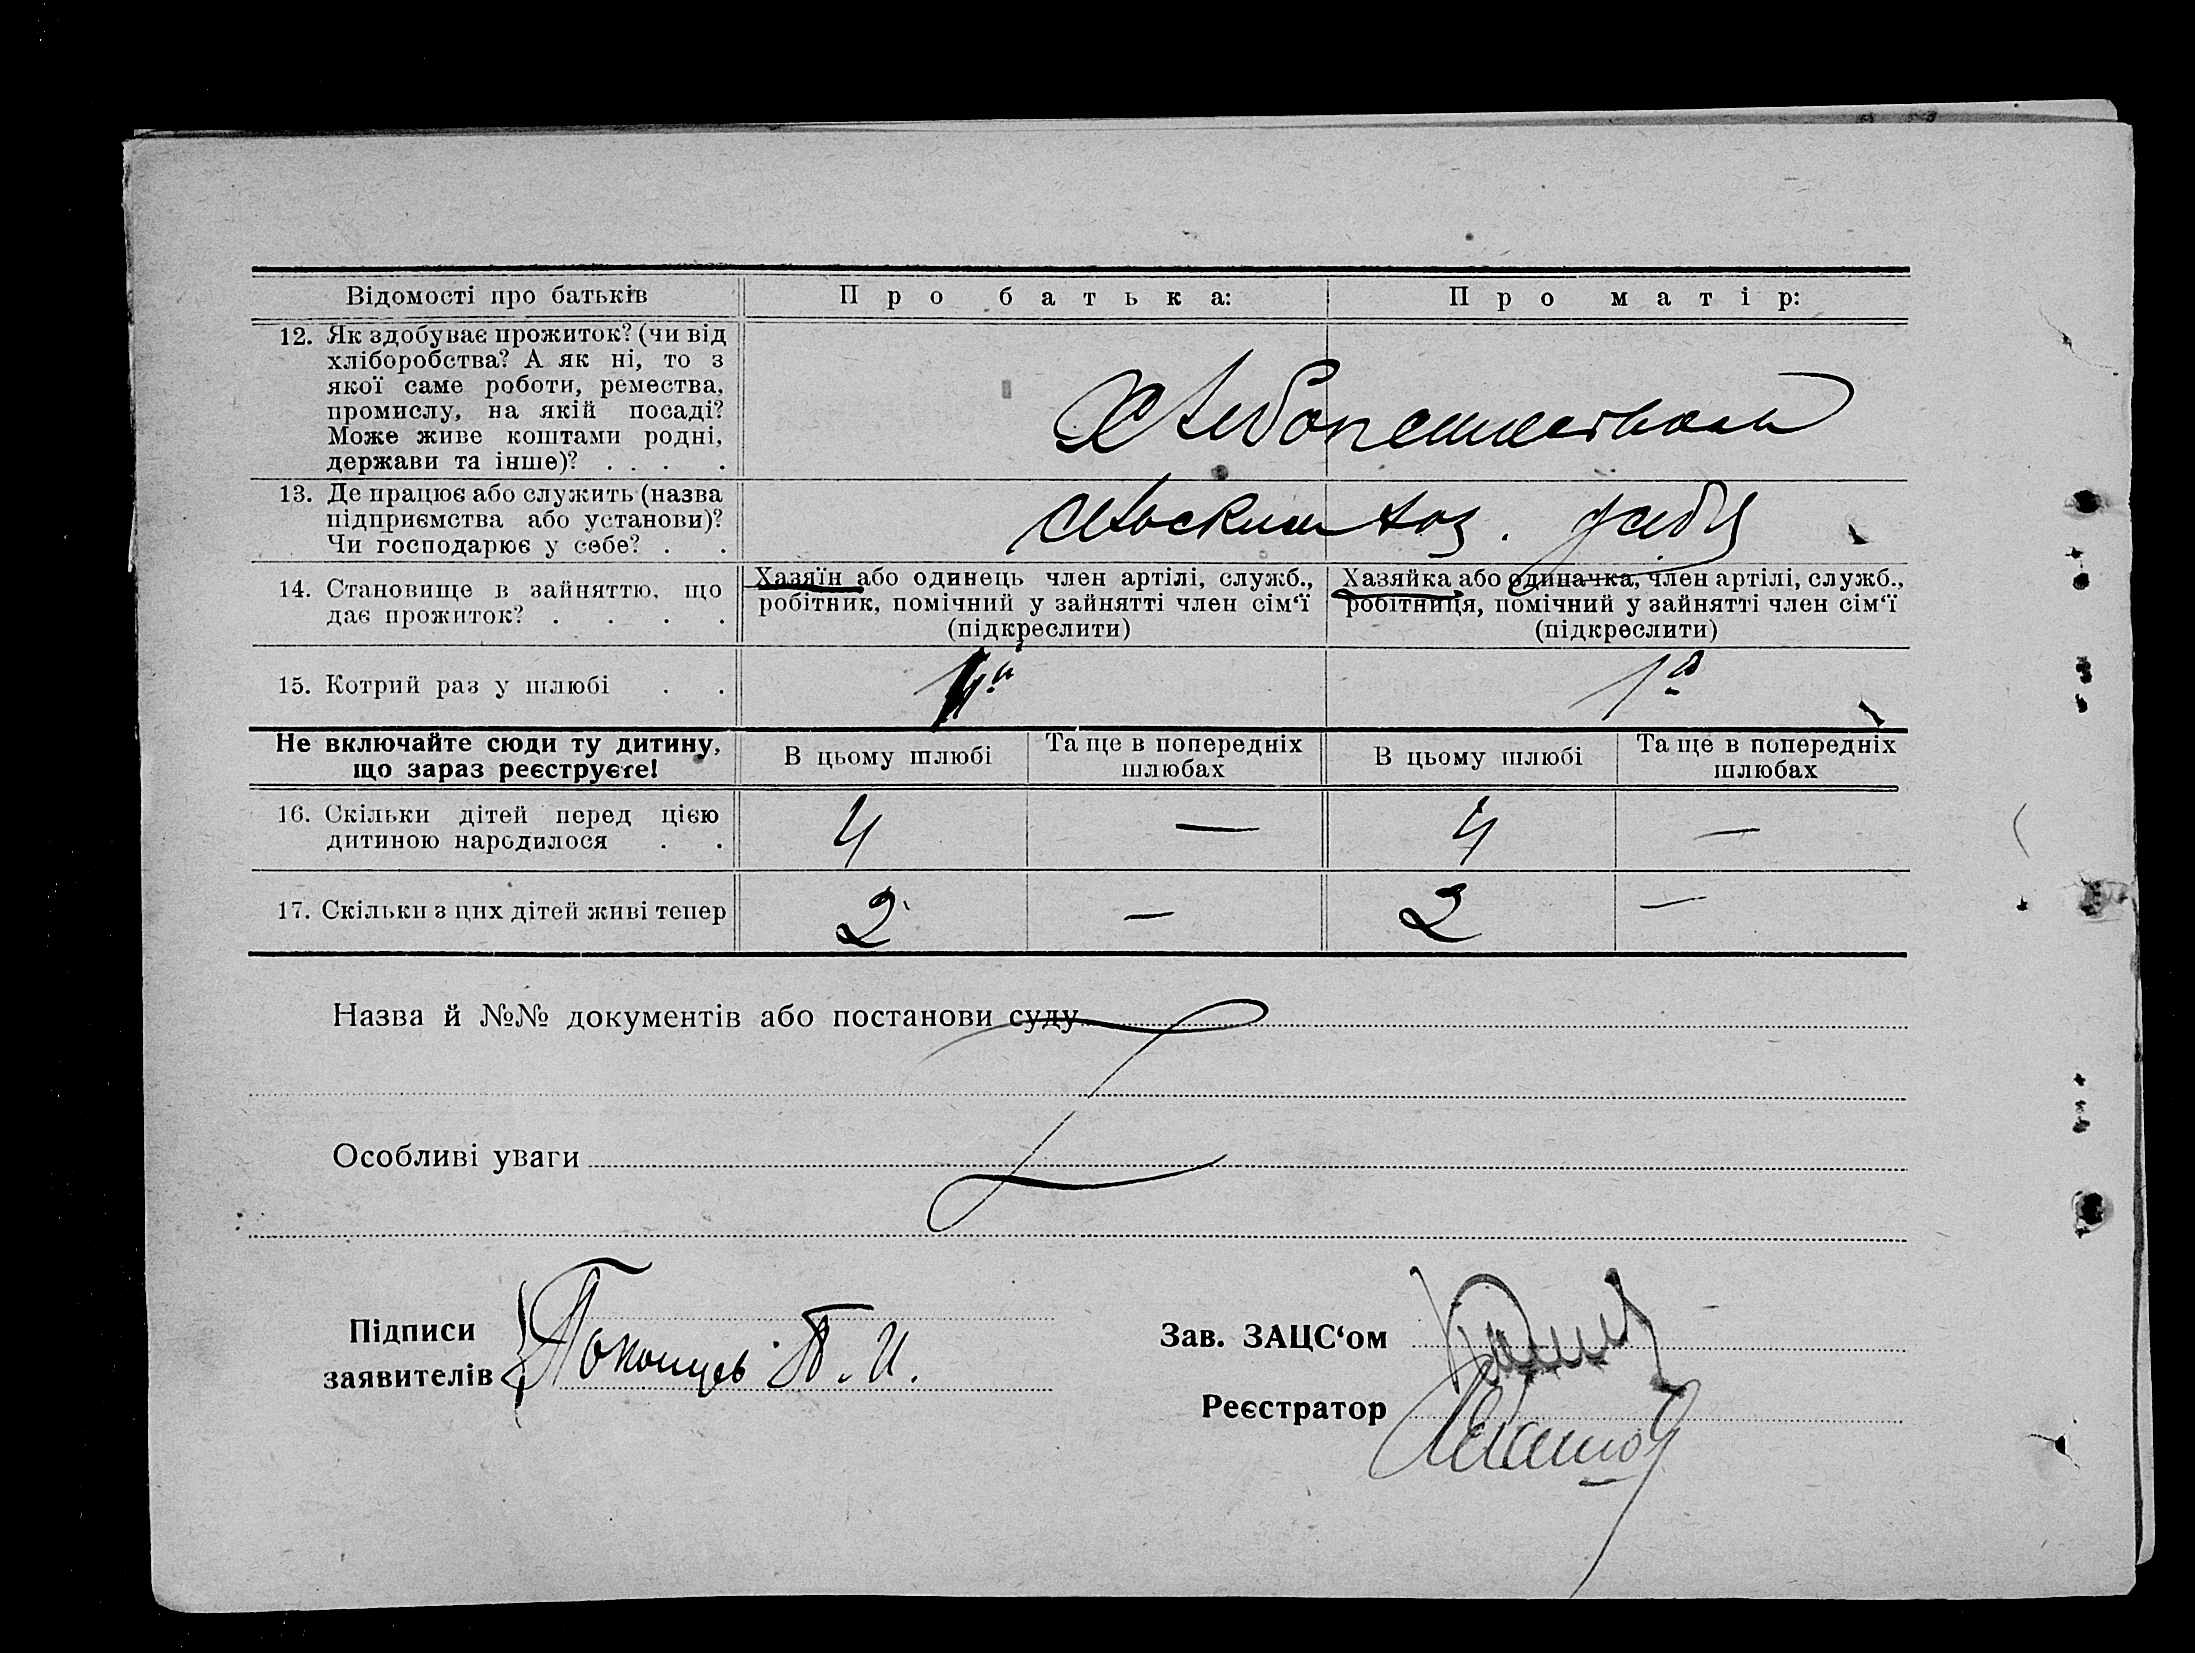 Відомості про батьків
Про батька:
Про матір:
12. Як здобуває прожиток? (чи від
хліборобства? А як ні, то з
якої саме роботи, ремества,
промислу, на якій посаді?
Може живе коштами родні,
держави та інше)? . . . .
Хлебопашеством
13. Де працює або служить (назва
підприємства або установи)?
Чи господарює у себе? . .
14. Становище в зайняттю, що
дає прожиток? . . . .
Хазяїн або одинець член артілі, служб.,
робітник, помічний у зайнятті член сім‘ї
(підкреслити)
Хазяйка або одиначка, член артілі, служб.,
робітниця, помічний у зайнятті член сім‘ї
(підкреслити)
15. Котрий раз у шлюбі . .
1й
1й
Не включайте сюди ту дитину,
що зараз реєструєте!
В цьому шлюбі
Та ще в попередніх
шлюбах
В цьому шлюбі
Та ще в попередніх
шлюбах
16. Скільки дітей перед цією
дитиною народилося . .
4 — 4 —
17. Скільки з цих дітей живі тепер
2 — 2 —
Назва й №№ документів або постанови суду
Особливі уваги
Підписи
заявителів
Зав. ЗАЦС‘ом
Реєстратор